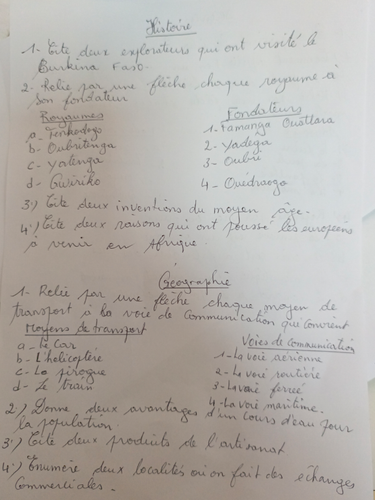 Histoire
1- Cite deux explorateurs qui ont visité le
Burkina Faso.
2- Relie par une flèche chaque royaume à
son fondateur
Royaumes
a- Tenkodogo
b- Oubritenga
c- Yatenga
d- Gwiriko
Fondateurs
1- Famanga Ouattara
2- Yadega
3- Oubri
4- Ouédraogo
3°) Cite deux inventions du moyen âge.
4°) Cite deux raisons qui ont poussé les européens
à venir en Afrique.
Géographie
1- Relie par une flèche chaque moyen de
transport à la voie de communication qui convient
Moyens de transport
a- Le car
b- L'hélicoptère
c- La pirogue
d- Le train
Voies de communication
1- La voie aérienne
2- La voie routière
3- La voie ferrée
4- La voie maritime.
2°) Donne deux avantages d'un cours d'eau pour
la population.
3°) Cite deux produits de l'artisanat
4°) Enumère deux localités où on fait des échanges
commerciales.